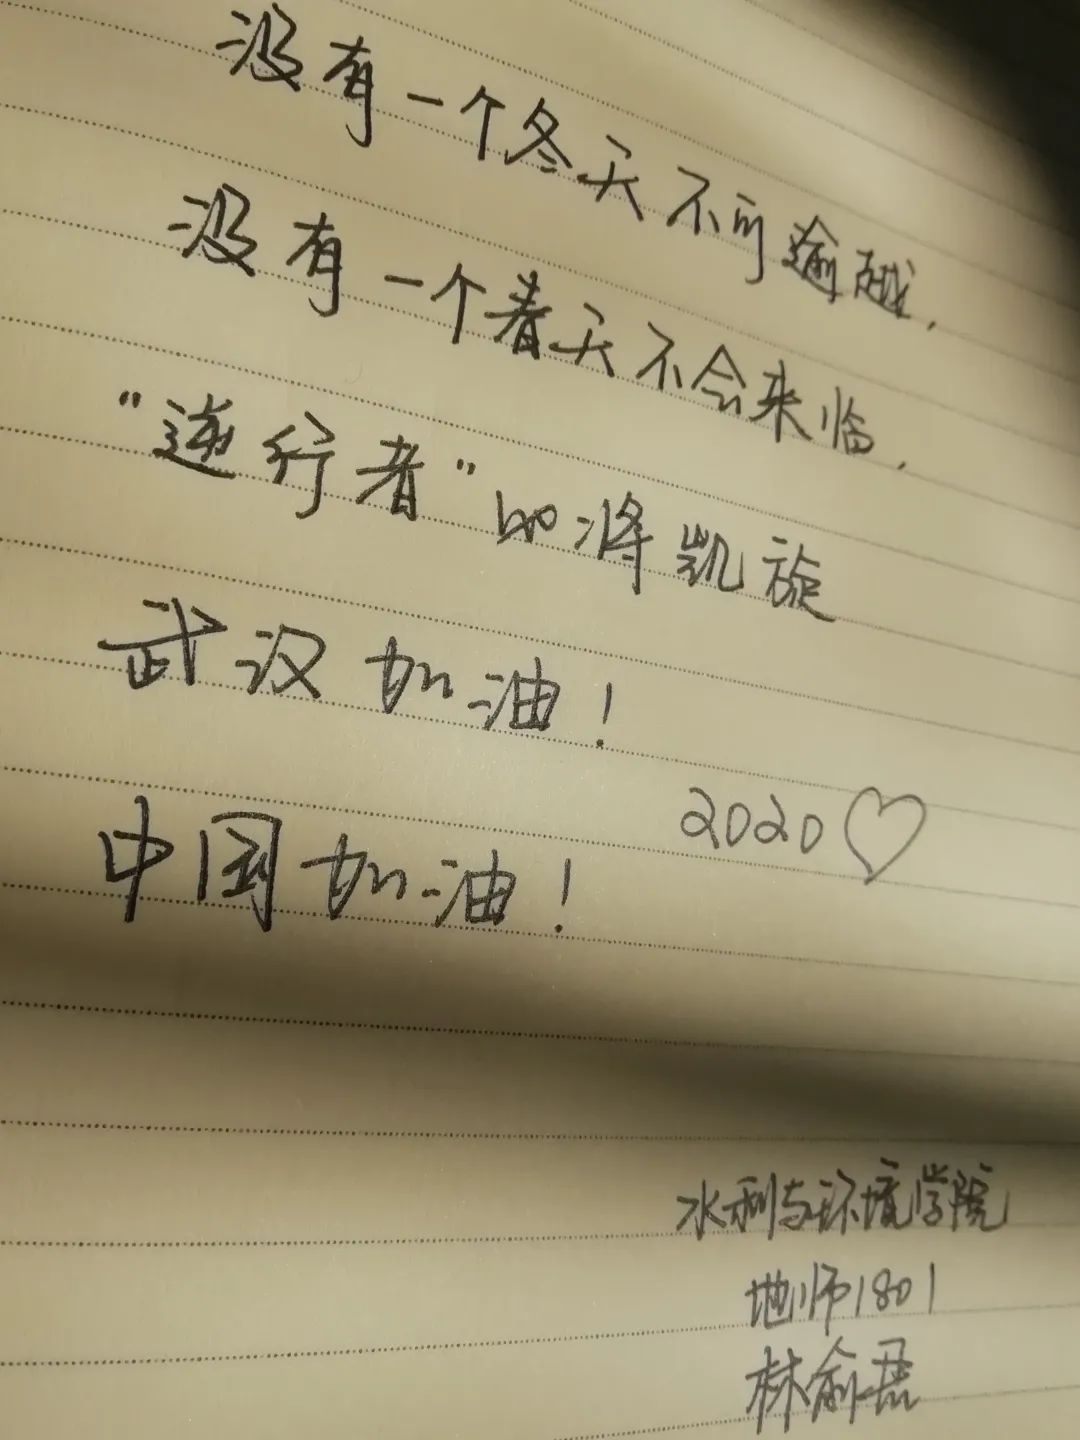 没有一个冬天不可逾越，
没有一个春天不会来临，
“逆行者”即将凯旋
武汉加油！
中国加油！
2020♡
水利与环境学院
地师1801
林俞君